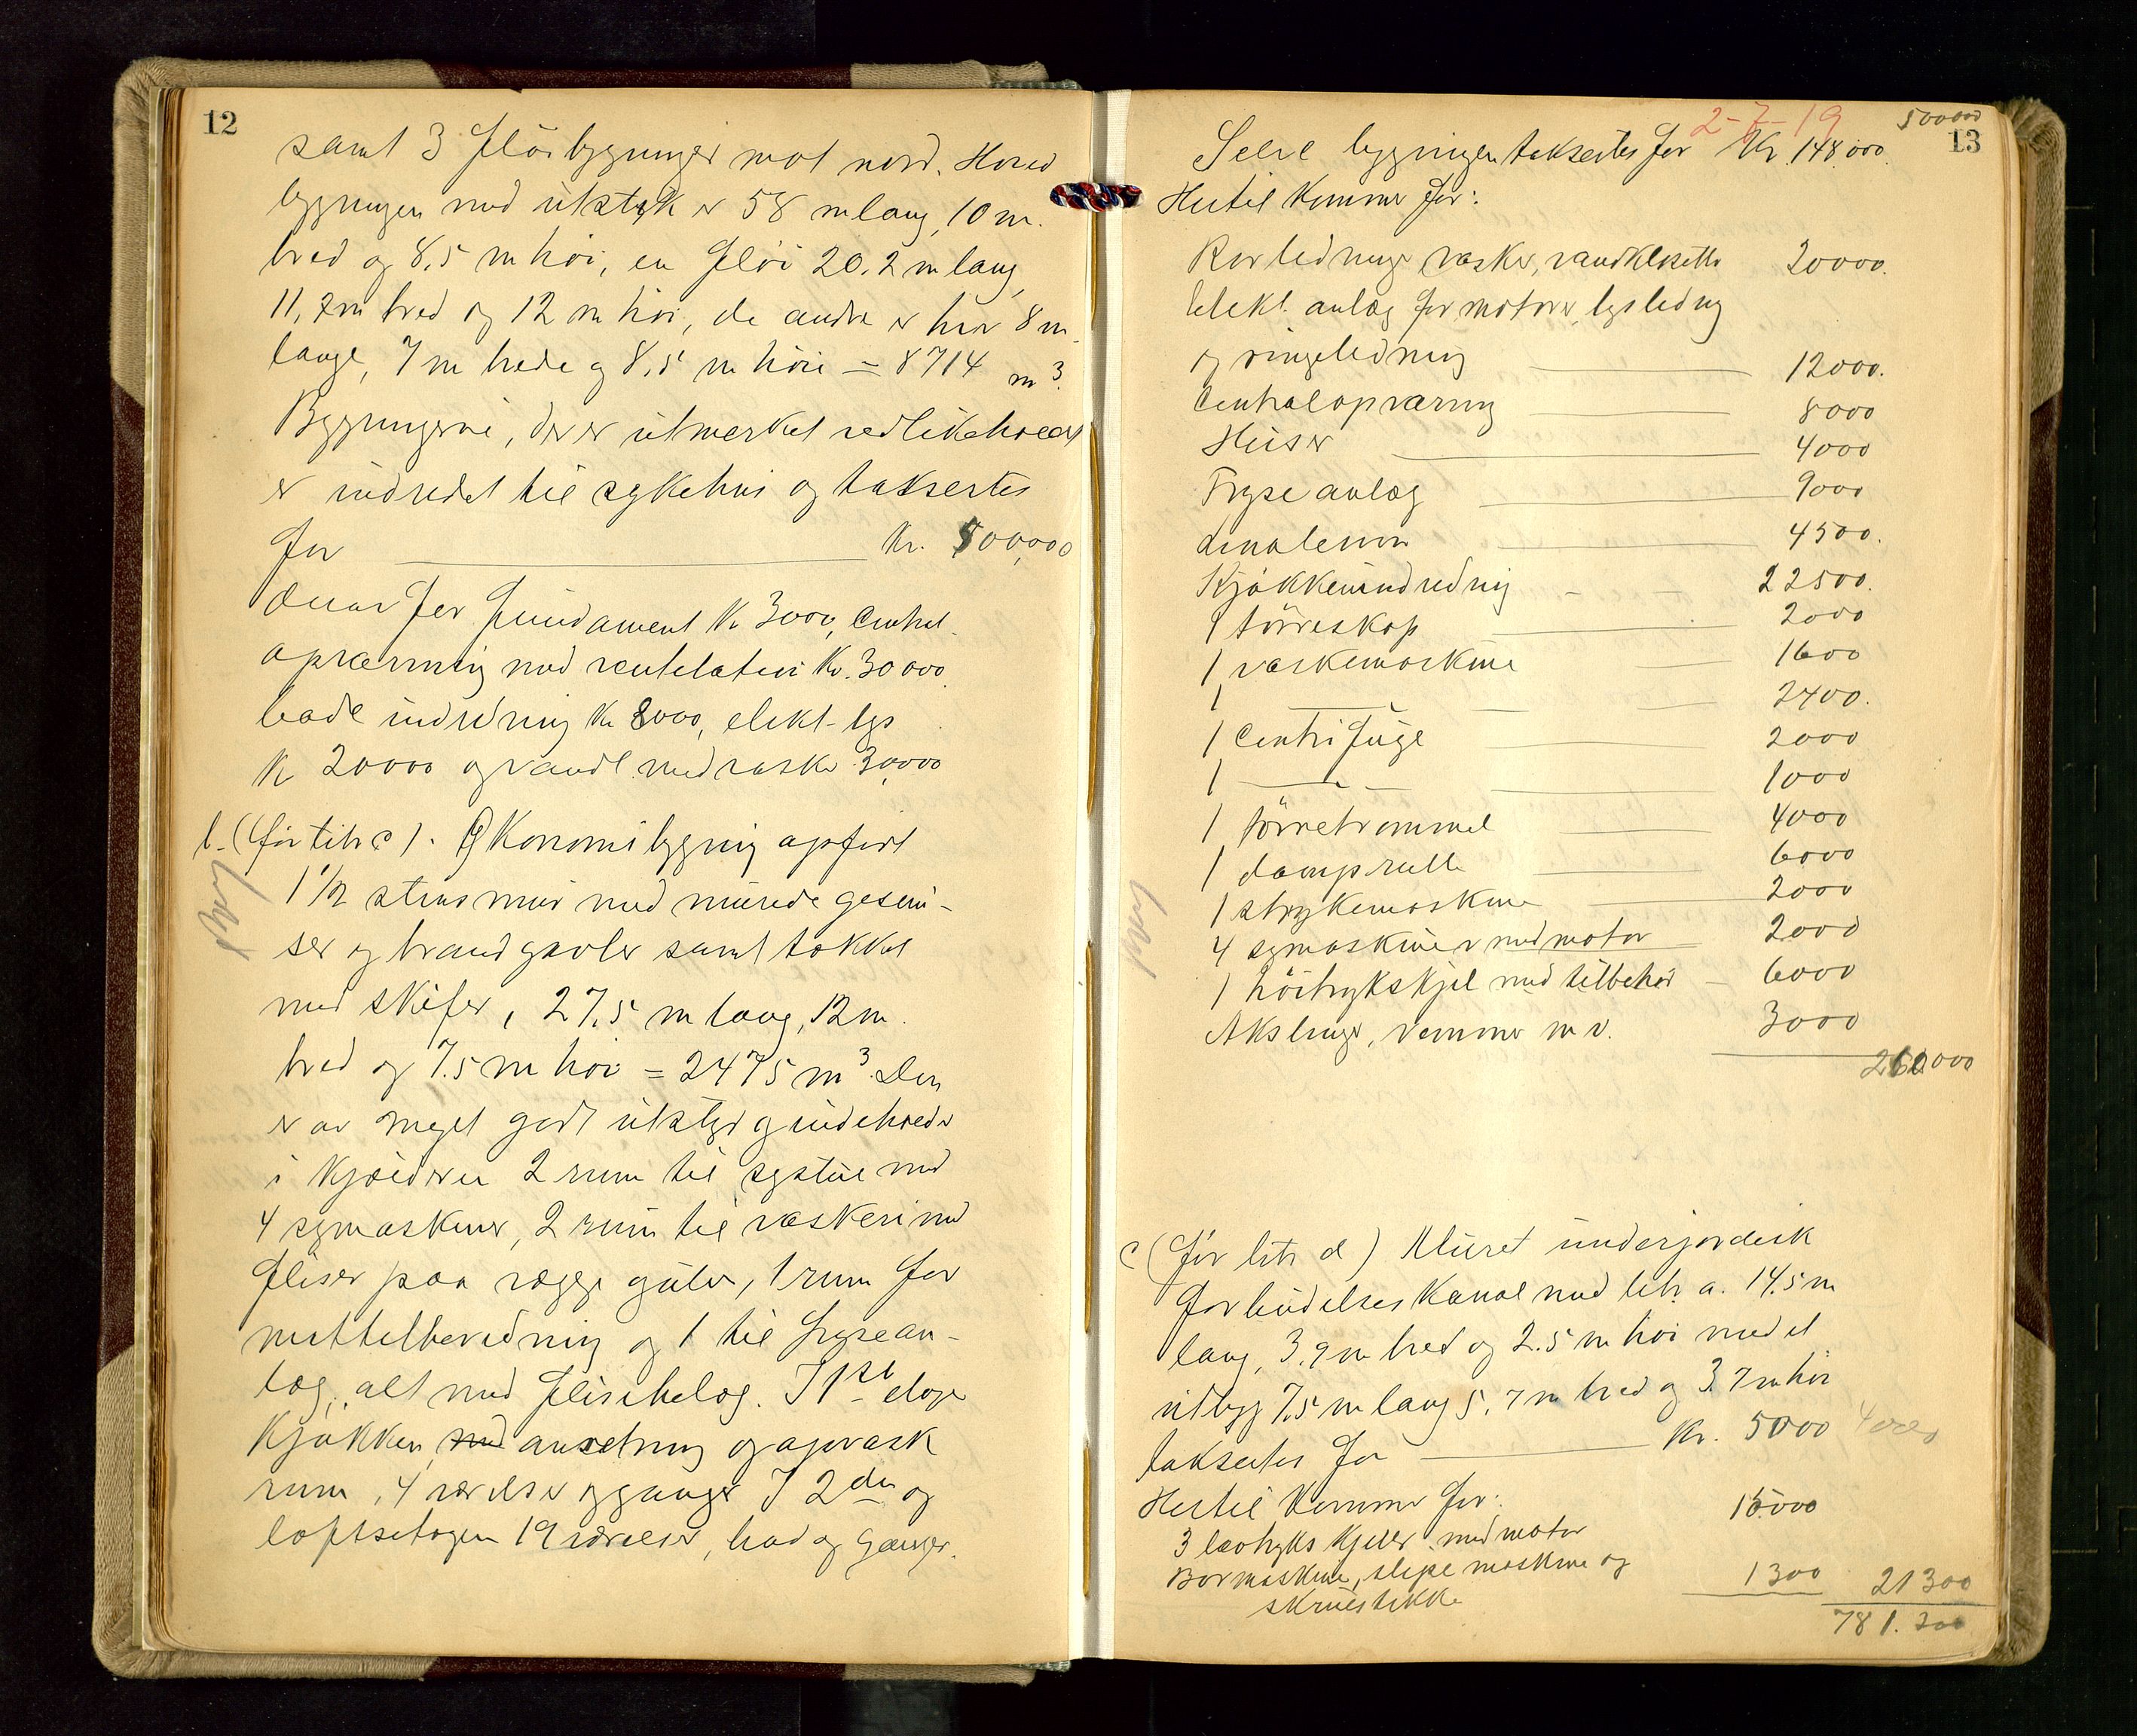 12
samt 3 flöibygninger mot nord. Hoved
bygningen med utstyk er 58 m lang, 10 m.
bred og 8,5 m höi, en flöi 20.2 m lang,
11,7m bred og 12 m höi, de andre er hver 8 m.
lange, 7 m brede og 8,5 m höie = 8714 m³.
Bygningerne, der er utmerket vedlikeholdt
er indredet til sykehus og takseres
for Kr. 500,000
derav for fundament Kr 3000, Central-
opvarming med ventilation Kr. 30 000
bade indredning Kr 8000, elekt. lys
Kr 20000 og vandl. med vaske 30,000
b. (för litr c). Økonomibygning opført
1 1/2 stens mur med murede gesim-
ser og brandgavler samt tækket
med skifer, 27,5 m lang, 12 m.
bred og 7.5 m höi = 2475 m³. Den
er av meget godt utstyr og indeholder
i kjælderen 2 rum til systue med
4 symaskiner, 2 rum til vaskeri med
fliser paa vægge gulv, 1 rum for
mattilberedning og 1 til frysean-
læg, alt med flisebelæg. I 1ste etage
Kjøkken, med anretning og opvask
rum, 4 værelser og ganger I 2den og
loftsetagen 19 værelser, bad og ganger.
2-7-19 500000
13
Selve bygningen takseres for Kr. 148.000.
Hertil kommer for:
Rørledninger vasker, vandklosetter 20000.
Elekt. anlæg for motorer, lysledning
og ringeledning 12000.
Centralopvarming 8000
Heiser 4000
Fryseanlæg 9000
Linoleum 4500.
Kjøkkenindredning 22500.
1 törreskap 2000
1 vaskemaskine 1600
1 — 2400.
1 Centrifuge 2000
1 — 1000
1 törretrommel 4000
1 damprulle 6000
1 strykemaskine 2000
4 symaskiner med motor 2000
1 höitrykskjel med tilbehör 6000
Akslinger, remmer m v. 3000
260.000
c (för litr d) Muret underjordisk
forbindelseskanal med litr. a. 14.5 m
lang, 3.9 m bred og 2.5 m höi med et
utbygg 7.5 m lang 5.7 m bred og 3.7 m höi
takseres for Kr. 5000
Hertil kommer for:
3 lavtryks kjeler med motor 15000
Bormaskine, slipe maskine og
skruestikke 1300 21300
781.300